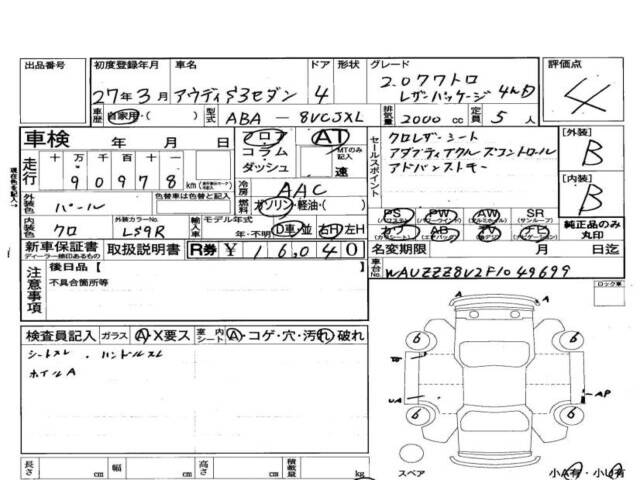 出品番号 初度登録年月 車名 ドア 形状 グレード 評価点
27年3月 アウディS3セダン 4 2.0クワトロ レザーパッケージ 4WD 4
車歴 自家用・( ) 型式 ABA-8VCJXL 排気量 2000 cc 定員 5 人
車検 年 月 日 フロア AT クロレザーシート 【外装】
コラム MTのみ記入 アダプティブクルーズコントロール B
走行 十万 万 千 百 十 一 ダッシュ 速 セールスポイント アドバンストキー
90978 km 冷房 AAC 【内装】
外装色 パール 色替車は色替と記入 燃料 ガソリン・軽油・( ) B
内装色 クロ 外装カラーNo. LS9R 輸入車 モデル年式 年・不明 D車・並 右H 左H PS PW AW SR
カワ AB TV ナビ 純正品のみ丸印
新車保証書 ディーラー捺印あるもの 取扱説明書 R券 ¥ 16,040 名変期限 月 日迄
注意事項 後日品【 】 車台No. WAUZZZ8V2F1049699
不具合箇所等 ロック車
検査員記入 ガラス A・X要ス 室内シート A・コゲ・穴・汚れ・破れ
シートスレ . ハンドルスレ
ホイルA
A A
6 6
UA AP
6 6
長さ cm 幅 cm 高さ cm 積載量 kg スペア 小A有・小U有